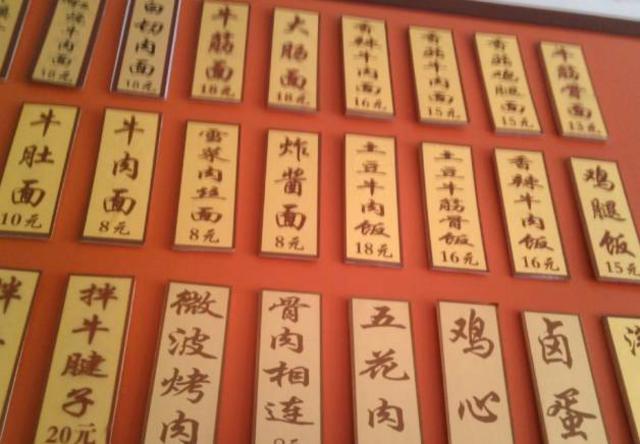 牛筋面
18元
大肠面
18元
香辣牛肉面
16元
15元
15元
牛筋骨面
13元
牛肚面
10元
牛肉面
8元
雪菜肉丝面
8元
炸酱面
8元
土豆牛肉饭
18元
土豆牛筋骨饭
16元
香辣牛肉饭
16元
鸡腿饭
15元
拌牛腱子
20元
微波烤肉
骨肉相连
五花肉
鸡心
卤蛋